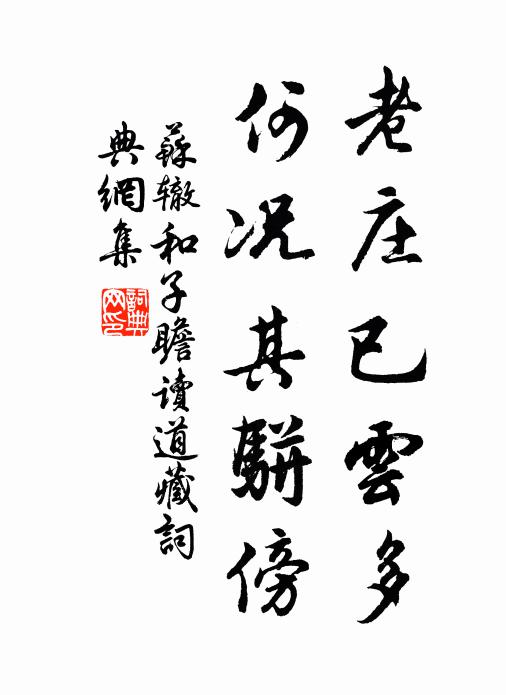 老庄已雲多
何況其駢傍
蘇轍和子瞻讀道藏詞
典網集
詞典
网印